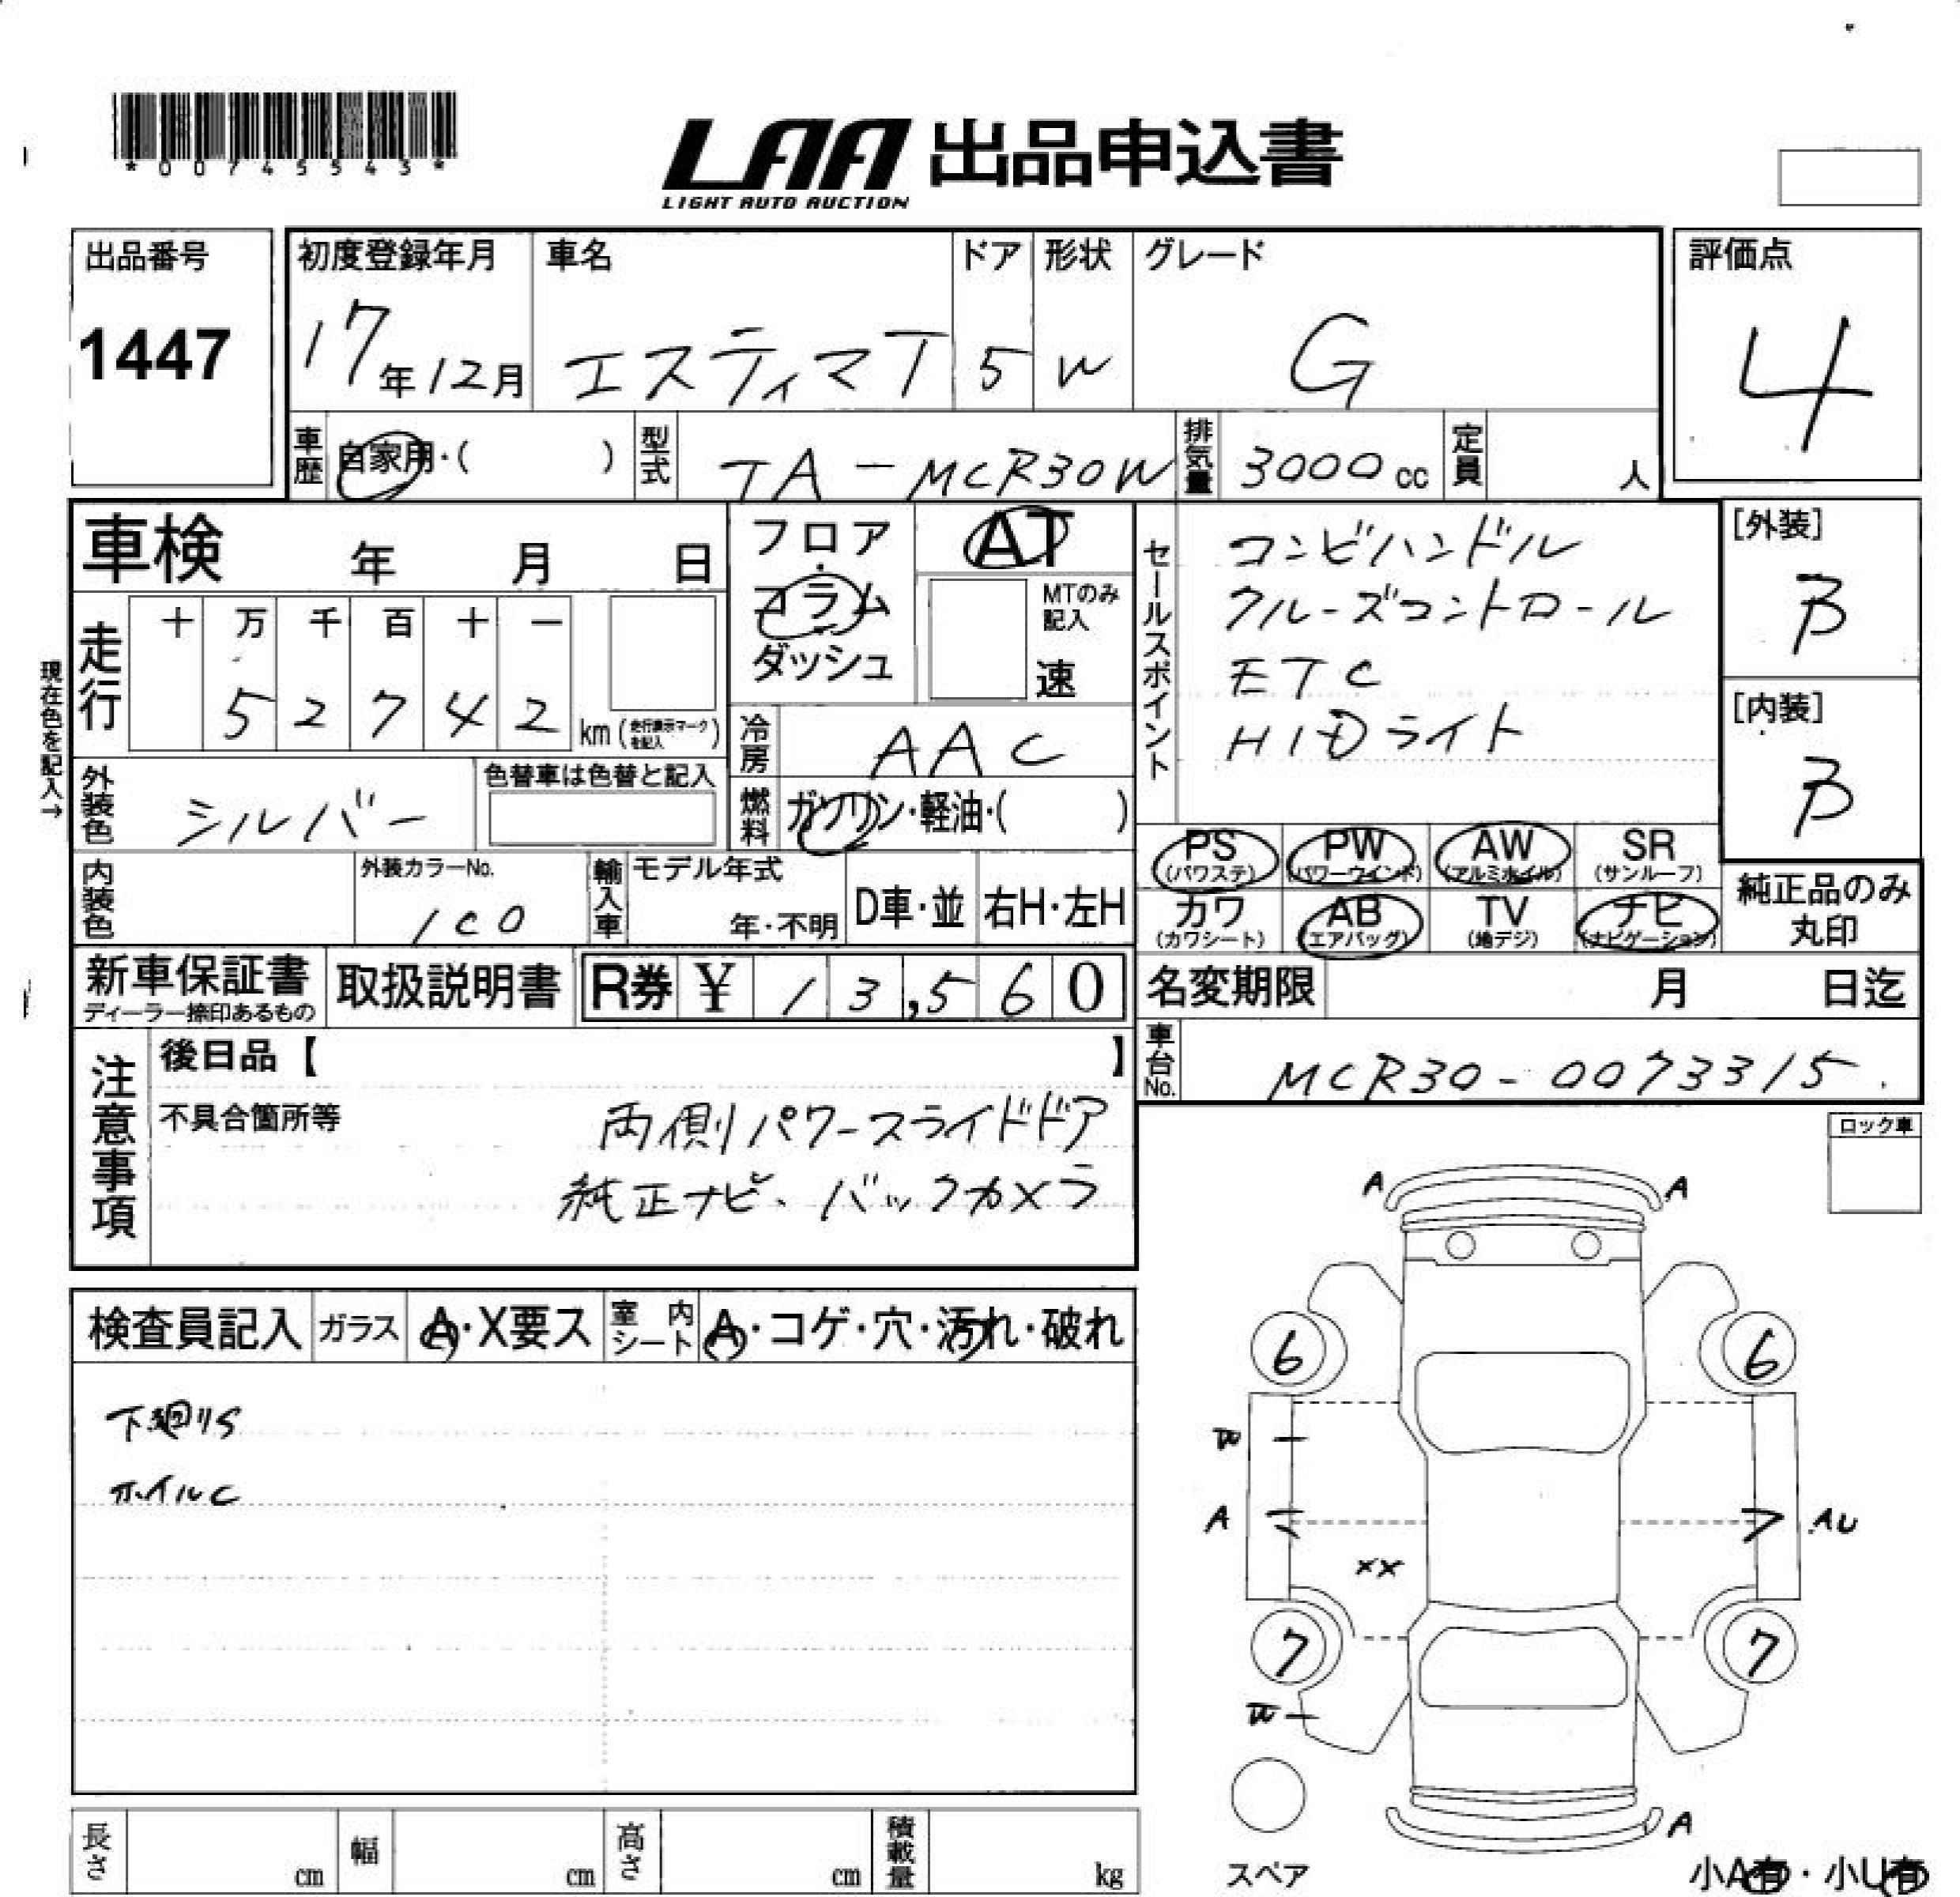 *00745543*
LAA 出品申込書
LIGHT AUTO AUCTION
出品番号
1447
初度登録年月
17年12月
車名
エスティマT
ドア
5
形状
W
グレード
G
評価点
4
車歴
自家用・( )
型式
TA-MCR30W
排気量
3000cc
定員
人
車検 年 月 日
フロア・コラム・ダッシュ
AT
MTのみ記入
速
セールスポイント
コンビハンドル
クルーズコントロール
ETC
HIDライト
[外装]
B
[内装]
B
現在色を記入→
走行
十 万 千 百 十 一
5 2 7 4 2 km (走行表示マークを記入)
冷房
AAC
外装色
シルバー
色替車は色替と記入
燃料
ガソリン・軽油・( )
PS (パワステ)
PW (パワーウインド)
AW (アルミホイル)
SR (サンルーフ)
カワ (カワシート)
AB (エアバッグ)
TV (地デジ)
ナビ (ナビゲーション)
純正品のみ丸印
内装色
外装カラーNo.
1C0
輸入車
モデル年式
年・不明
D車・並
右H・左H
新車保証書
ディーラー捺印あるもの
取扱説明書
R券 ¥ 13,560
名変期限 月 日迄
車台No.
MCR30-0073315
注意事項
後日品【 】
不具合箇所等
両側パワースライドドア
純正ナビ、バックカメラ
ロック車
検査員記入
ガラス
A・X要ス
室内シート
A・コゲ・穴・汚れ・破れ
下廻りS
ホイルC
A A
6 6
A AU
XX
7 7
A
スペア
小A有・小U有
長さ cm
幅 cm
高さ cm
積載量 kg